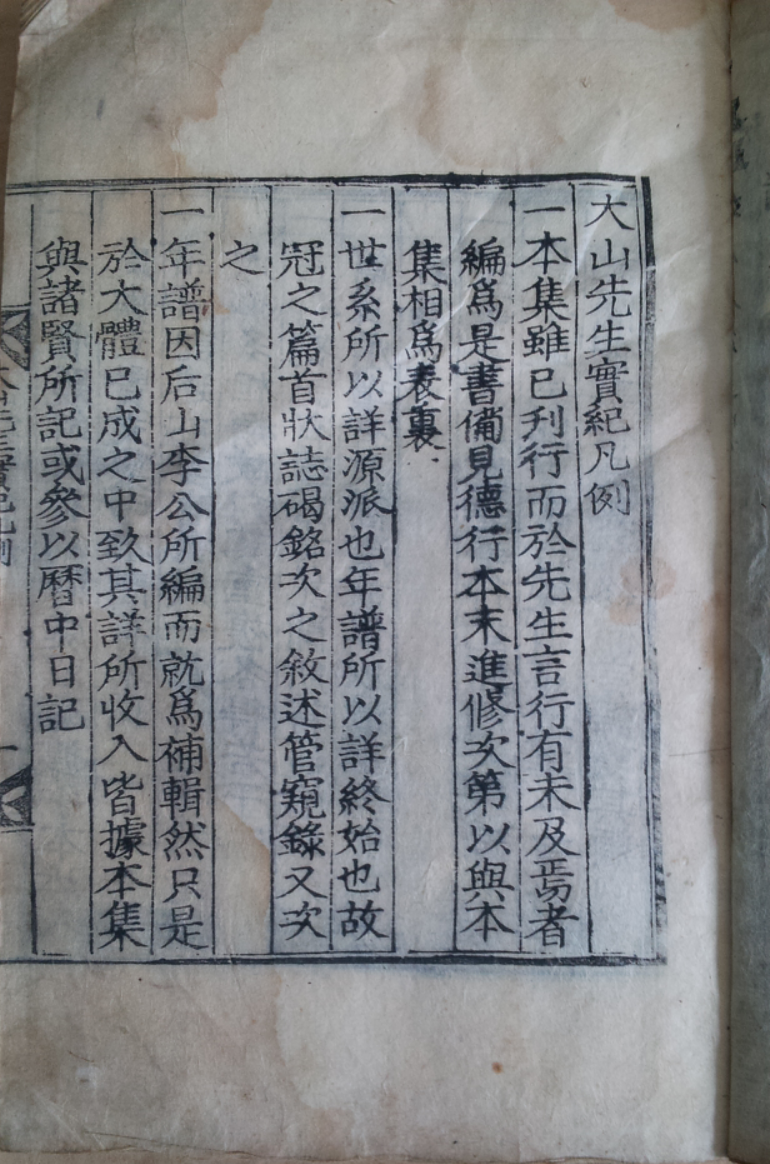 大山先生實紀凡例
一本集雖已刋行而於先生言行有未及焉者
編爲是書備見德行本末進修次第以與本
集相爲表裏
一世系所以詳源派也年譜所以詳終始也故
冠之篇首狀誌碣銘次之敘述管窺錄又次
之
一年譜因后山李公所編而就爲補輯然只是
於大體已成之中致其詳所收入皆據本集
與諸賢所記或參以曆中日記
大山先生實紀凡例
一